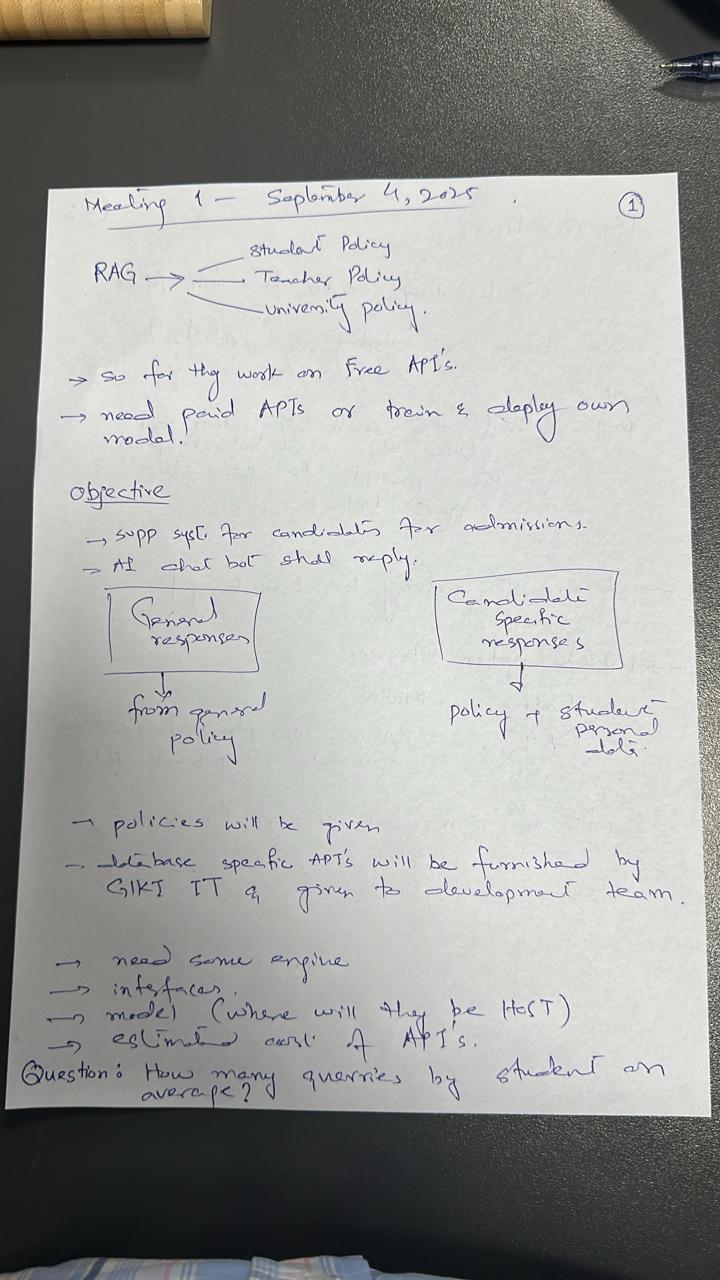 Meeting 1 - September 4, 2025
1
RAG → Student Policy
Teacher Policy
university policy.
→ so far they work on Free API's.
→ need paid APIs or train & deploy own
model.
Objective
→ supp syst. for candidates for admissions.
→ AI chat bot shall reply.
General
responses
from general
policy
Candidate
specific
responses
policy + student
personal
data.
→ policies will be given
→ database specific API's will be furnished by
GIKI IT & given to development team.
→ need some engine
→ interfaces.
→ model (where will they be HOST)
→ estimated cost of API's.
Question: How many querries by student on
average?